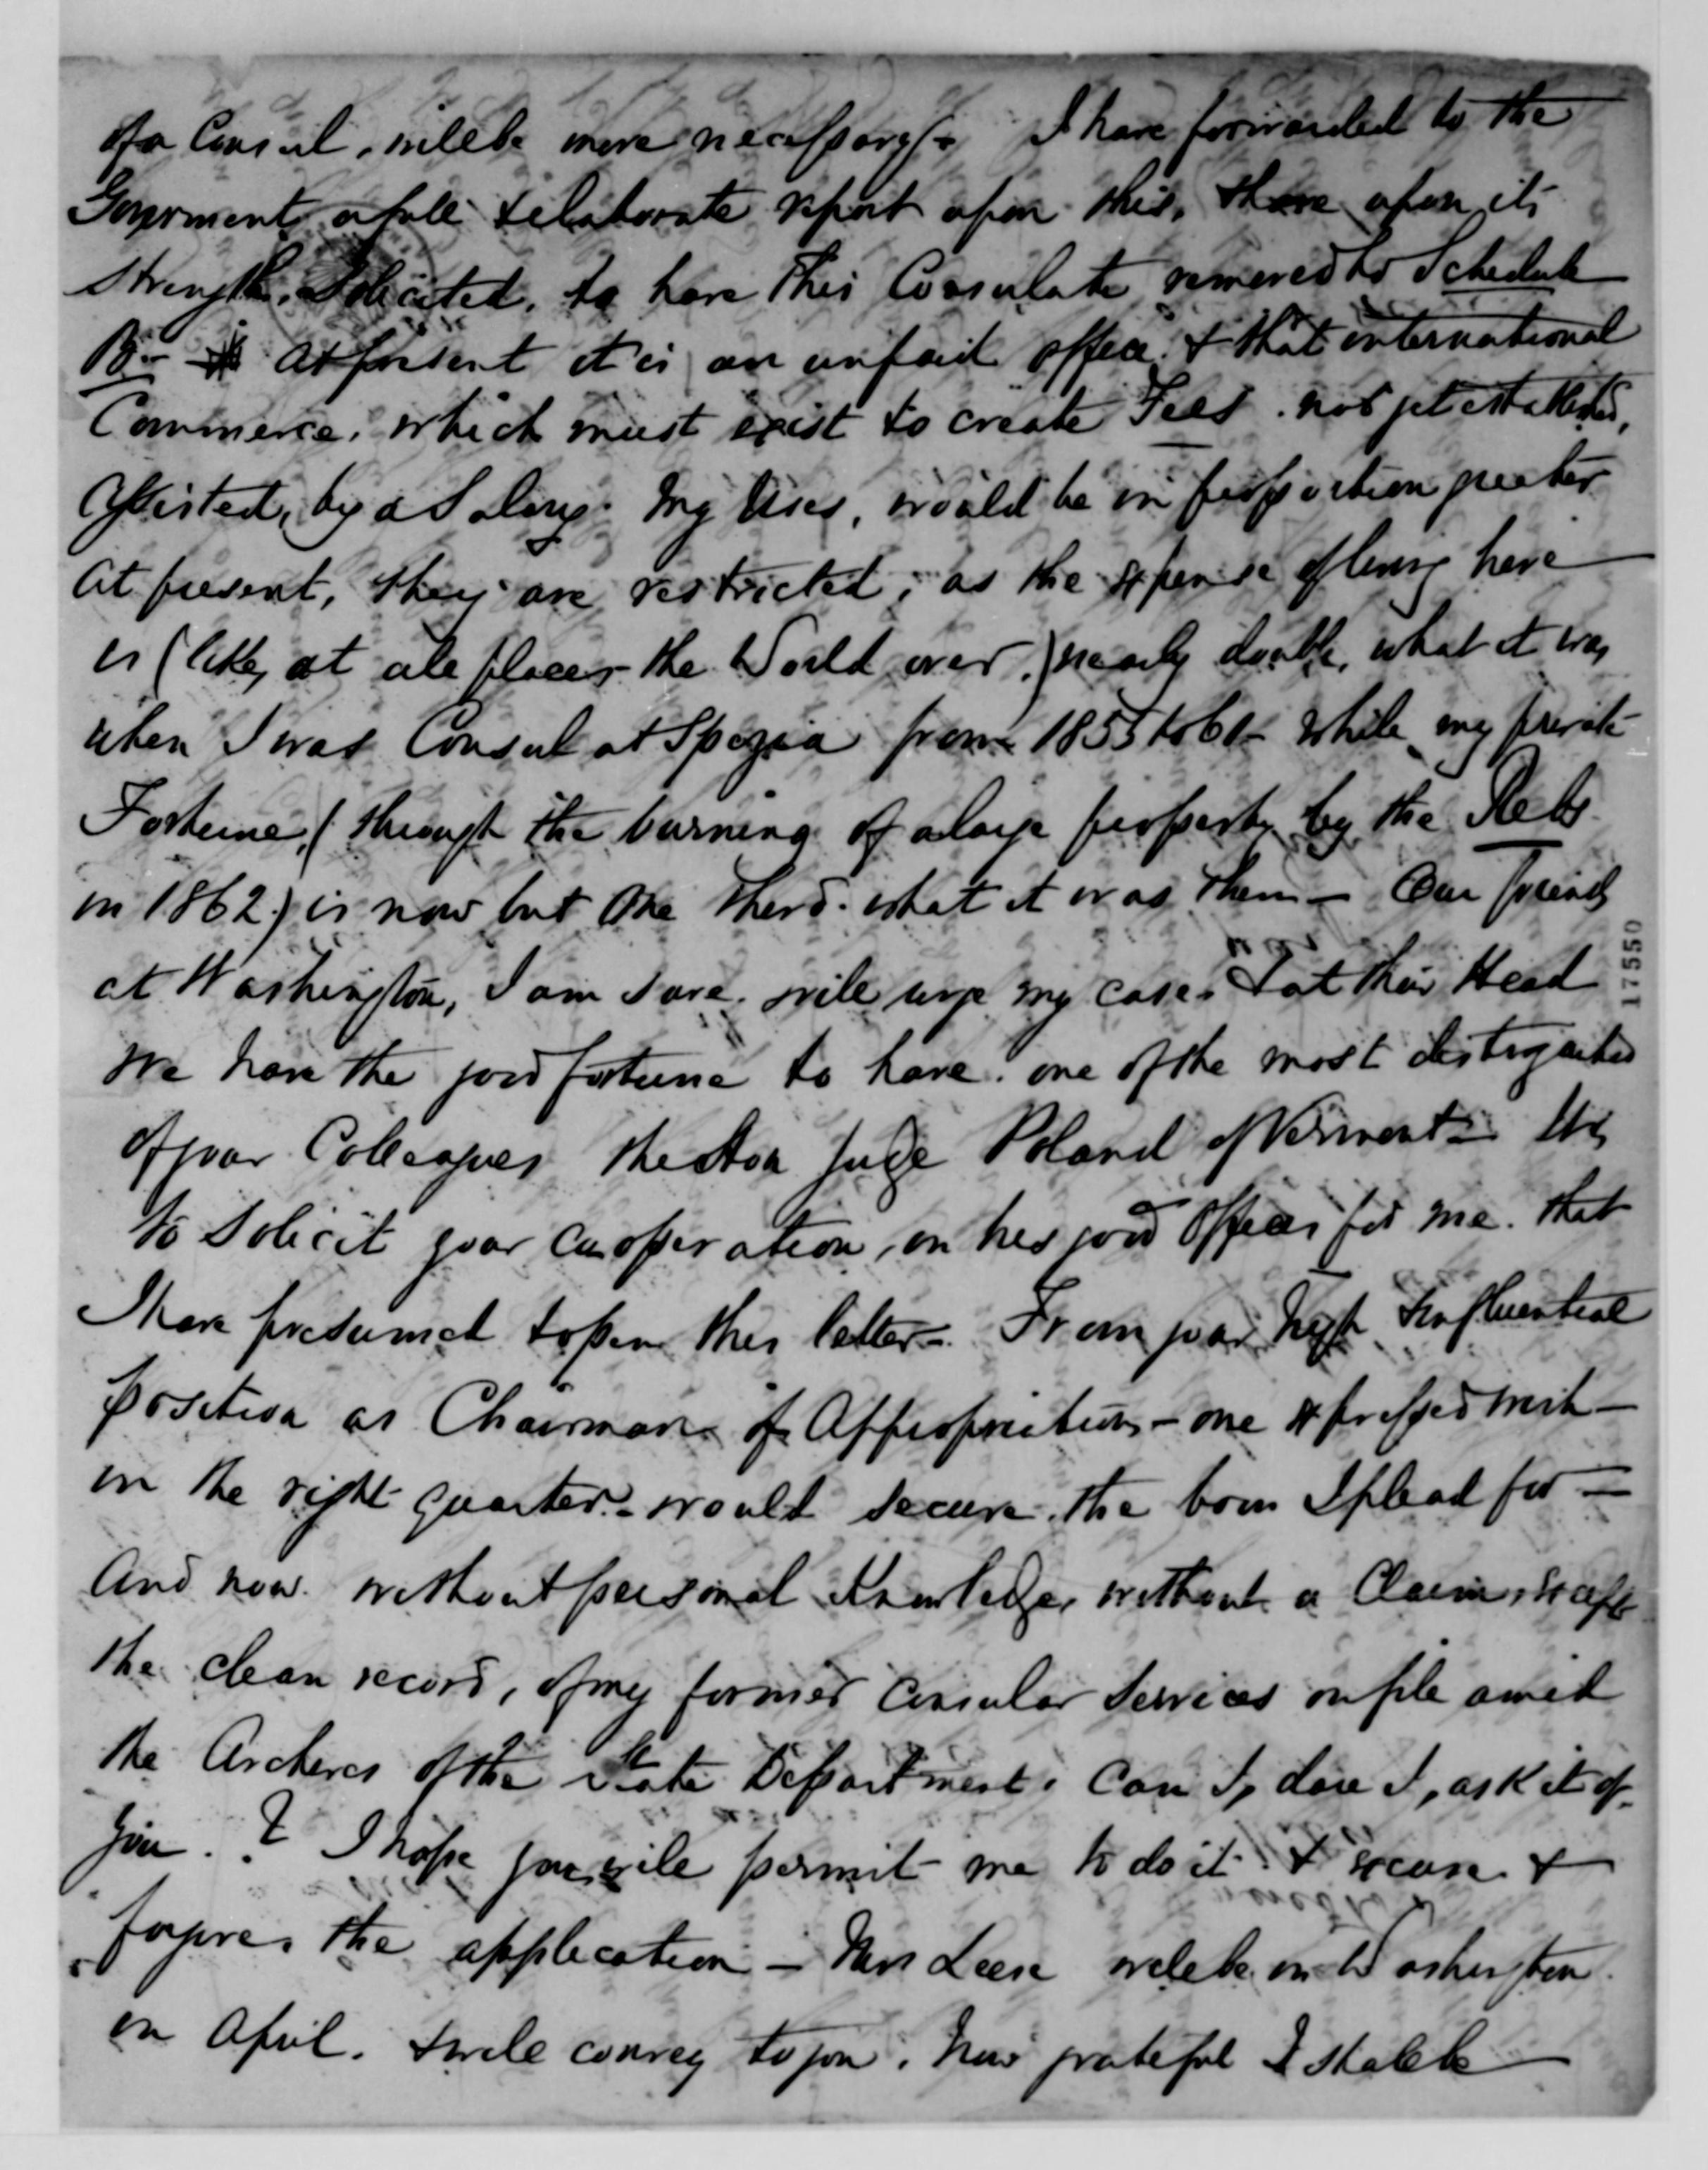 of a Consul, will be more necessary - I have forwarded to the
Government a full & elaborate report upon this, & have upon its
strength, Solicited, to have this Consulate removed to Schedule
B - At present it is an unpaid office, & that international
Commerce, which must exist to create Fees not yet established,
Assisted, by a Salary. My Uses, would be in proportion greater
At present, they are restricted, as the expense of living here
is (like, at all places the World over,) nearly double, what it was
when I was Consul at Spezia from 1855 to 61 - While my private
Fortune, (through the burning of a large property by the Rebs
in 1862) is now but One Third what it was then - Our friends
at Washington, I am sure will urge my case, & at their Head
We have the good fortune to have, one of the most distinguished
of your Colleagues the Hon Judge Poland of Vermont - It is
to Solicit your Cooperation, in his good Offices for me. that
I have presumed to pen this letter - From your high & influential
position as Chairman of Appropriations - one expressed wish -
in the right quarter - would secure the boon I plead for -
And now without personal Knowledge, without a Claim, save
the clean record, of my former Consular Services on file amid
the Archives of the State Department, Can I, dare I, ask it of
you. ? I hope you will permit me to do it & excuse &
forgive, the application - Mrs Leese will be in Washington
in April. & will convey to you, how grateful I shall be
17550